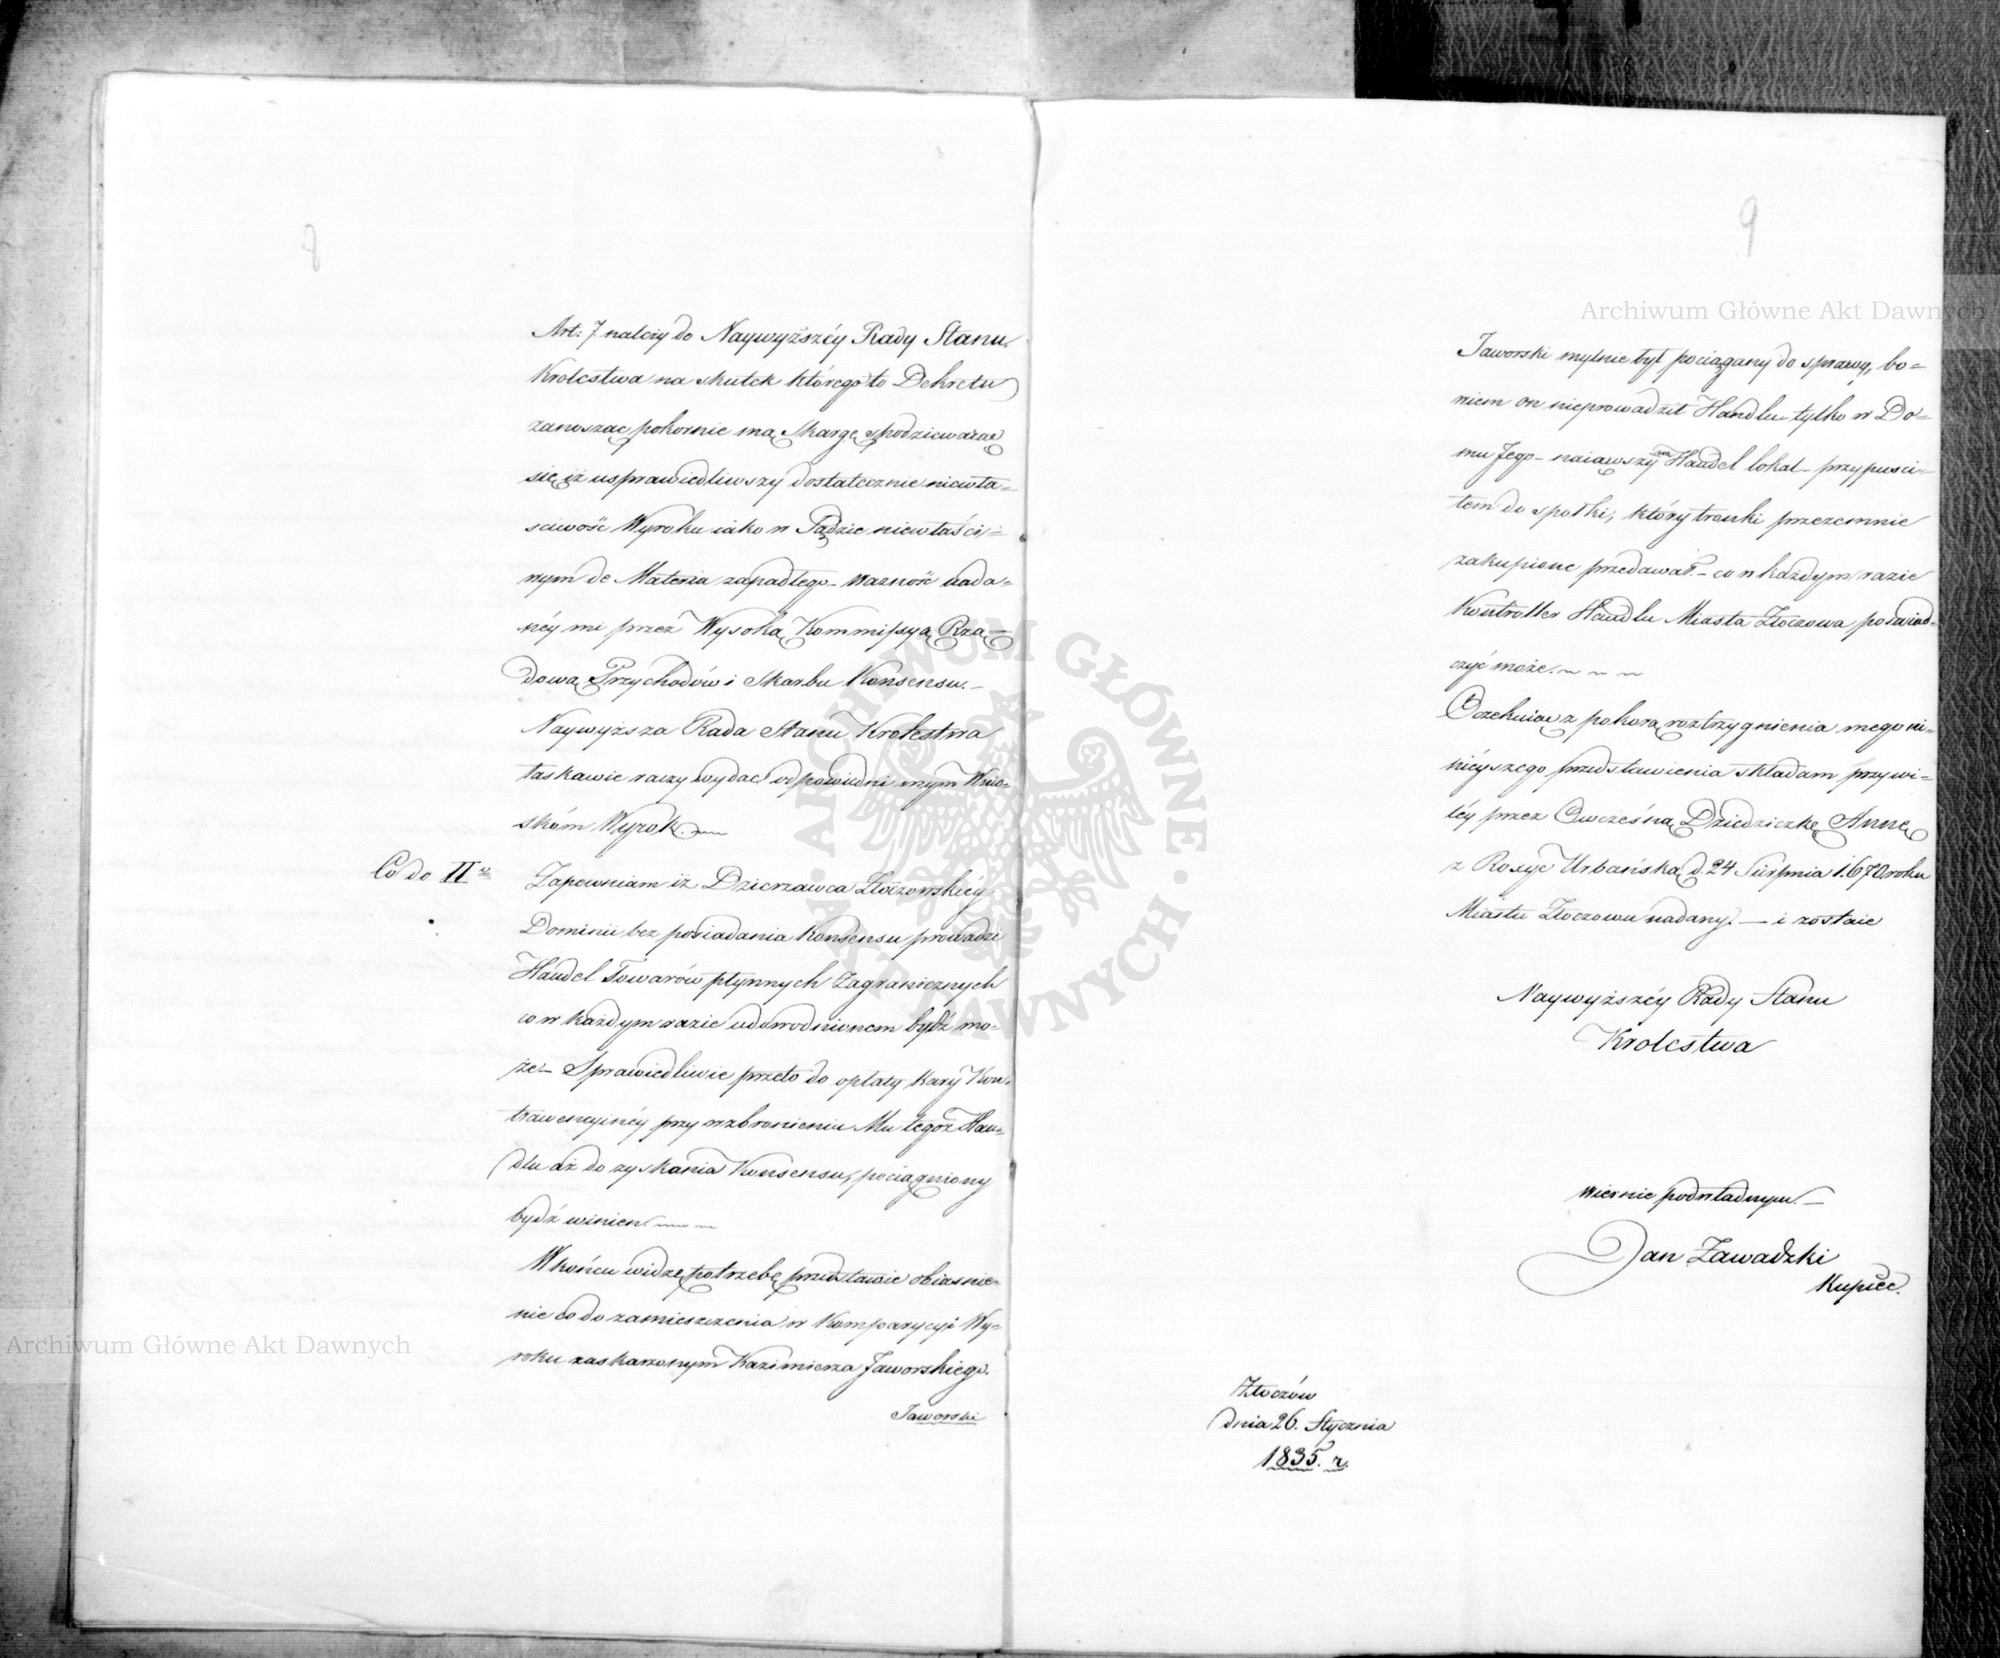 8
Art: 7 należy do Naywyższéy Rady Stanu
Krolestwa na skutek którego to Dekretu
zanosząc pokornie mą skargę spodziewając
się iż usprawiedliwszy dostatecznie niewła=
sciwość Wyroku iako w Sądzie niewłaści=
wym de Materia zapadłego – ważność nada=
néy mi przez Wysoką Kommissyą Rzą=
dową Przychodów i Skarbu Konsensu. –
Naywyższa Rada Stanu Krolestwa
łaskawie raczy wydać odpowiedni mym Wnio=
skóm Wyrok. ~
Co do II
Zapewniam iż Dzierzawca Złoczowskiéy
Dominii bez posiadania Konsensu prowadzi
Handel Towarów płynnych Zagranicznych
co w każdym razie udowodnionem bydź mo=
że – Sprawiedliwie przeto do opłaty Kary Kon=
trawencyinéy przy wzbronieniu Mu tegoż Han=
dlu aż do zyskania Konsensu, pociągniony
bydź winien. ~ ~ ~
Wkońcu widzę potrzebę przedstawić obiasnie=
nie co do zamieszczenia w Komparycyi Wy=
roku zaskarzonym Kazimierza Jaworskiego.
Jaworski
9
Jaworski mylnie był pociągany do sprawy, bo=
wiem on nieprowadził Handlu tylko w Do=
mu Jego – naiąwszy na Handel lokal – przypuści=
łem do społki, który trunki przezemnie
zakupione przedawał. – co w każdym razie
Kontroller Handlu Miasta Złoczowa poświad=
czyć może. ~ ~ ~
Oczekuiąc z pokorą roztrzygnienia mego ni=
niéyszego przedstawienia składam przywi=
léy przez Owczésną Dziedziczkę Annę
z Rosyc Urbańską d. 24 Sierpnia 1670 roku
Miastu Złoczowu nadany. – i zostaie
Naywyższéy Rady Stanu
Krolestwa
wiernie podwładnym. –
Jan Zawadzki
Kupiec.
Złoczów
dnia 26. Stycznia
1835. r.
Archiwum Główne Akt Dawnych
Archiwum Główne Akt Dawnych
ARCHIWUM GŁÓWNE AKT DAWNYCH